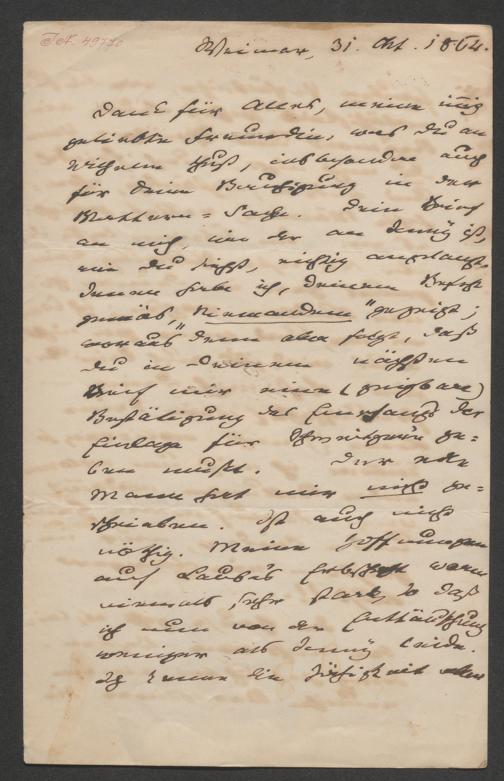 J.N. 49770
Weimar, 31. Okt. 1864.
Dank für Alles, meine innig
geliebte Freundin, was Du an
Wilhelm thust, insbesondere auch
für Deine Bemühung in der
Sache. Dein Brief
an mich, wie der an Jenny ist,
wie Du siehst, richtig angelangt.
Jenen habe ich, Deinem Befehl
gemäß „Niemandem" gezeigt;
woraus denn aber folgt, daß
Du in Deinem nächsten
Brief mir eine (zeigbare)
Bestätigung des Empfangs der
Einlage für ge=
ben mußt. Der edle
Mann hat mir nicht ge=
schrieben. Ist auch nicht
nöthig. Meine Hoffnungen
auf Laube's waren
niemals sehr stark, so daß
ich nun von der Enttäuschung
weniger als Jenny leide.
Ich kenne die